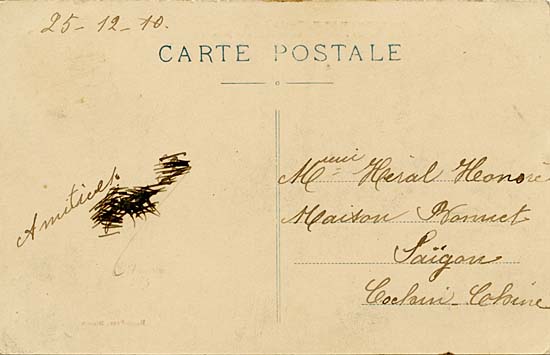 25-12-10.
CARTE POSTALE
Amitiés
Héral Honoré
Maison
Saïgon
Cochin-Chine